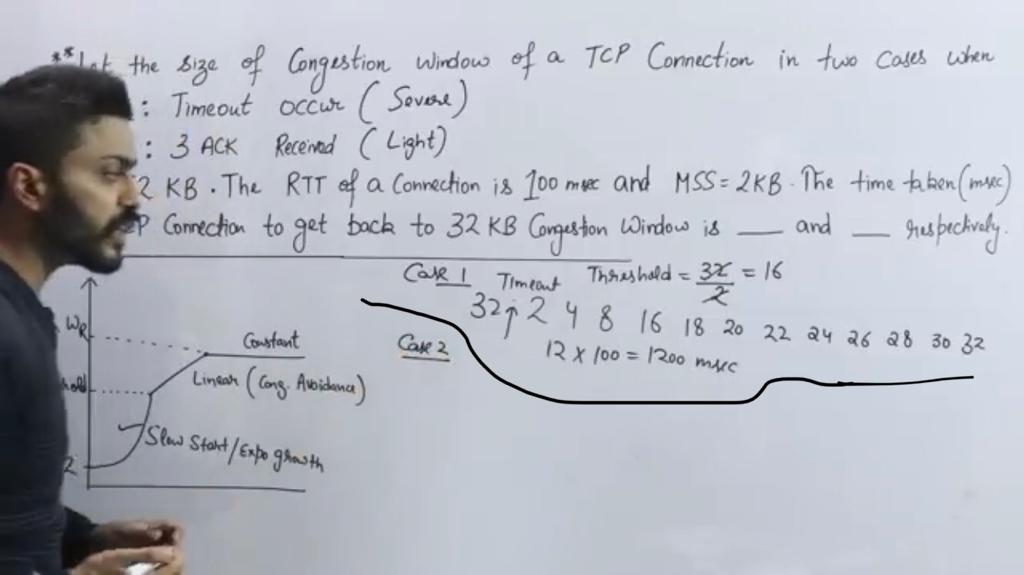 ** the size of Congestion Window of a TCP Connection in two Cases when
: Timeout occur (Severe)
: 3 ACK Received (Light)
2 KB. The RTT of a Connection is 100 msec and MSS = 2KB. The time taken (msec)
P Connection to get back to 32 KB Congestion Window is ___ and ___ respectively.
Case 1 Timeout Threshold = 32/2 = 16
32↑ 2 4 8 16 18 20 22 24 26 28 30 32
Case 2 12 × 100 = 1200 msec
WR Constant
Linear (Cong. Avoidance)
hold
Slow Start/Expo growth
2